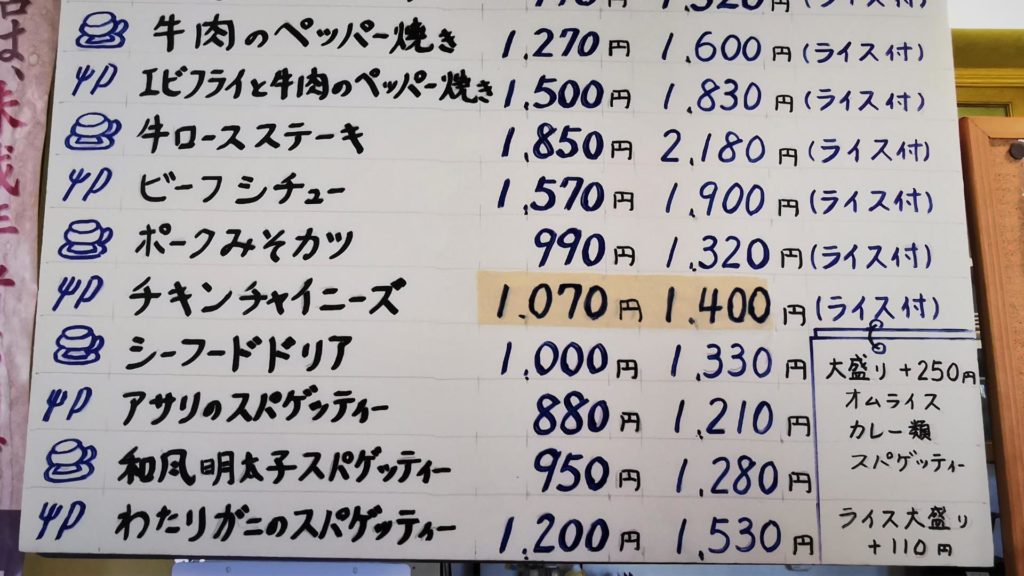 1,320円 (ライス付)
牛肉のペッパー焼き 1,270円 1,600円 (ライス付)
エビフライと牛肉のペッパー焼き 1,500円 1,830円 (ライス付)
牛ロースステーキ 1,850円 2,180円 (ライス付)
ビーフシチュー 1,570円 1,900円 (ライス付)
ポークみそカツ 990円 1,320円 (ライス付)
チキンチャイニーズ 1,070円 1,400円 (ライス付)
シーフードドリア 1,000円 1,330円
アサリのスパゲッティー 880円 1,210円
和風明太子スパゲッティー 950円 1,280円
わたりガニのスパゲッティー 1,200円 1,530円
大盛り +250円
オムライス
カレー類
スパゲッティー
ライス大盛り
+110円